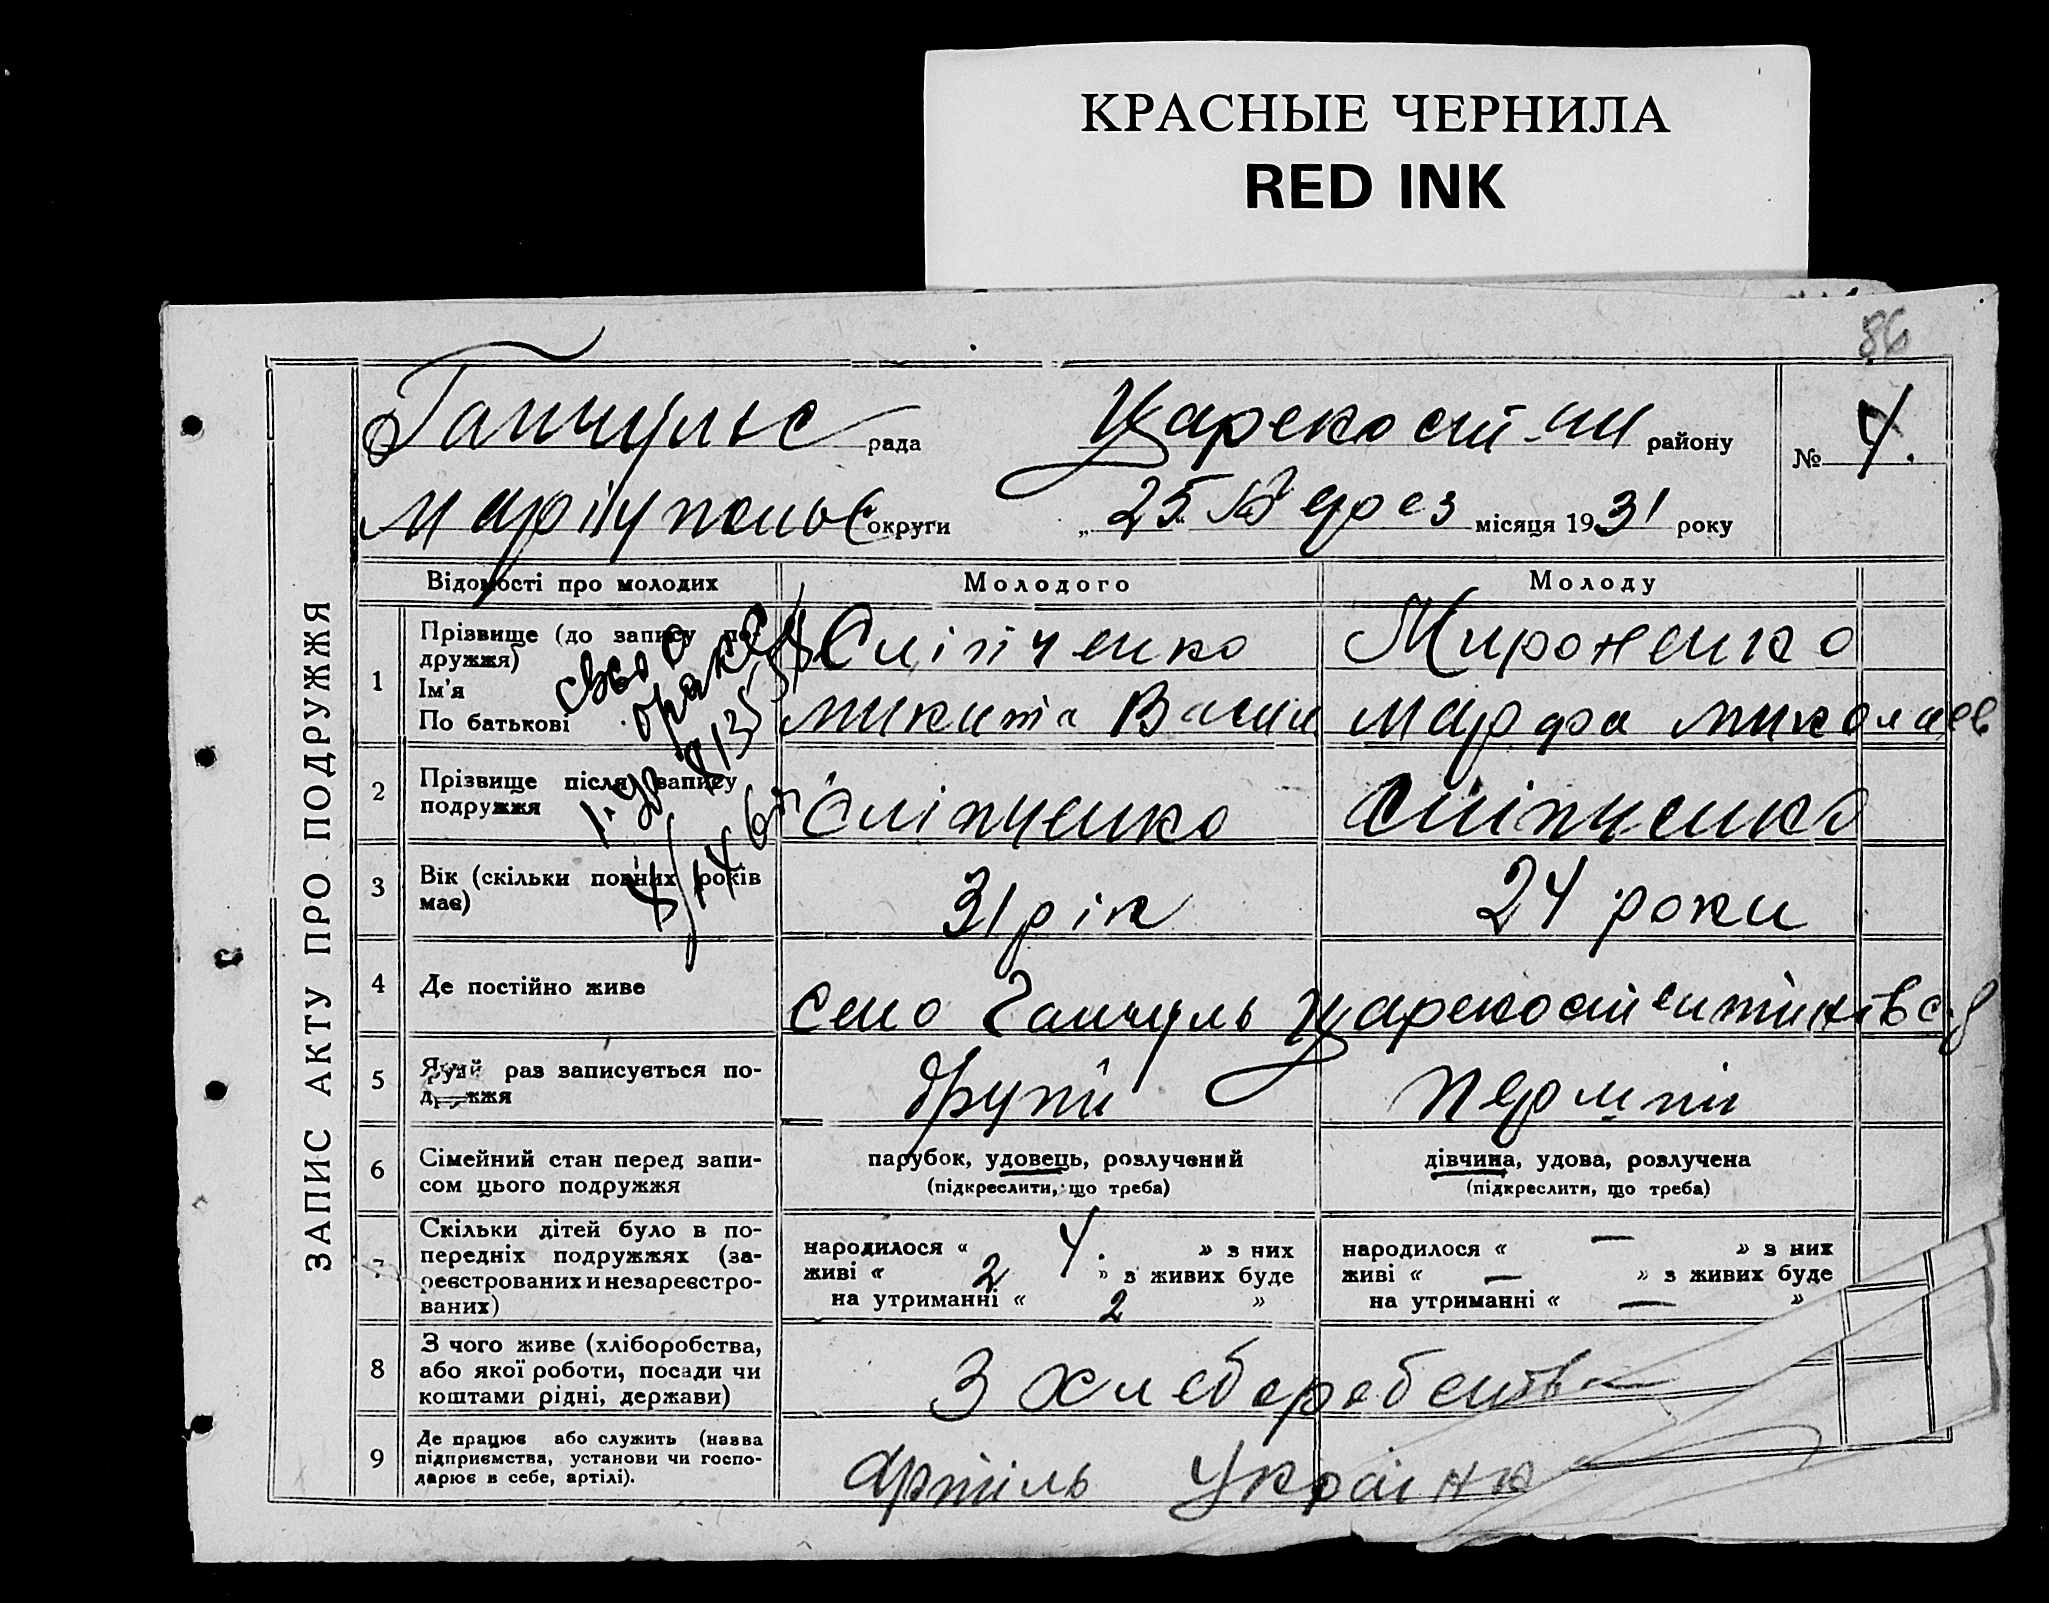 КРАСНЫЕ ЧЕРНИЛА
RED INK
86
Ганчульс рада Царекост-ин району № 4.
Маріупольс округи „25“ місяця 1931 року
ЗАПИС АКТУ ПРО ПОДРУЖЖЯ
Відомості про молодих Молодого Молоду
1 Прізвище (до запису по-
дружжя)
Ім'я
По батькові
Сліпченко Мироненко
Микита Васил Марфа Николаев
2 Прізвище після запису
подружжя
Сліпченко Сліпченко
3 Вік (скільки повних років
має)
31 рік 24 роки
4 Де постійно живе
село Ганчуль
5 Який раз записується по-
дружжя
другій перший
6 Сімейний стан перед запи-
сом цього подружжя
парубок, удовець, розлучений
(підкреслити, що треба)
дівчина, удова, розлучена
(підкреслити, що треба)
7 Скільки дітей було в по-
передніх подружжях (за-
реєстрованих и незареєстро-
ваних)
народилося « 4. » з них
живі « 2 » з живих буде
на утриманні « 2 »
народилося « — » з них
живі « — » з живих буде
на утриманні « — »
8 З чого живе (хліборобства,
або якої роботи, посади чи
коштами рідні, держави)
З хлеборобства
9 Де працює або служить (назва
підприємства, установи чи госпо-
дарює в себе, артілі).
Артіль Україна